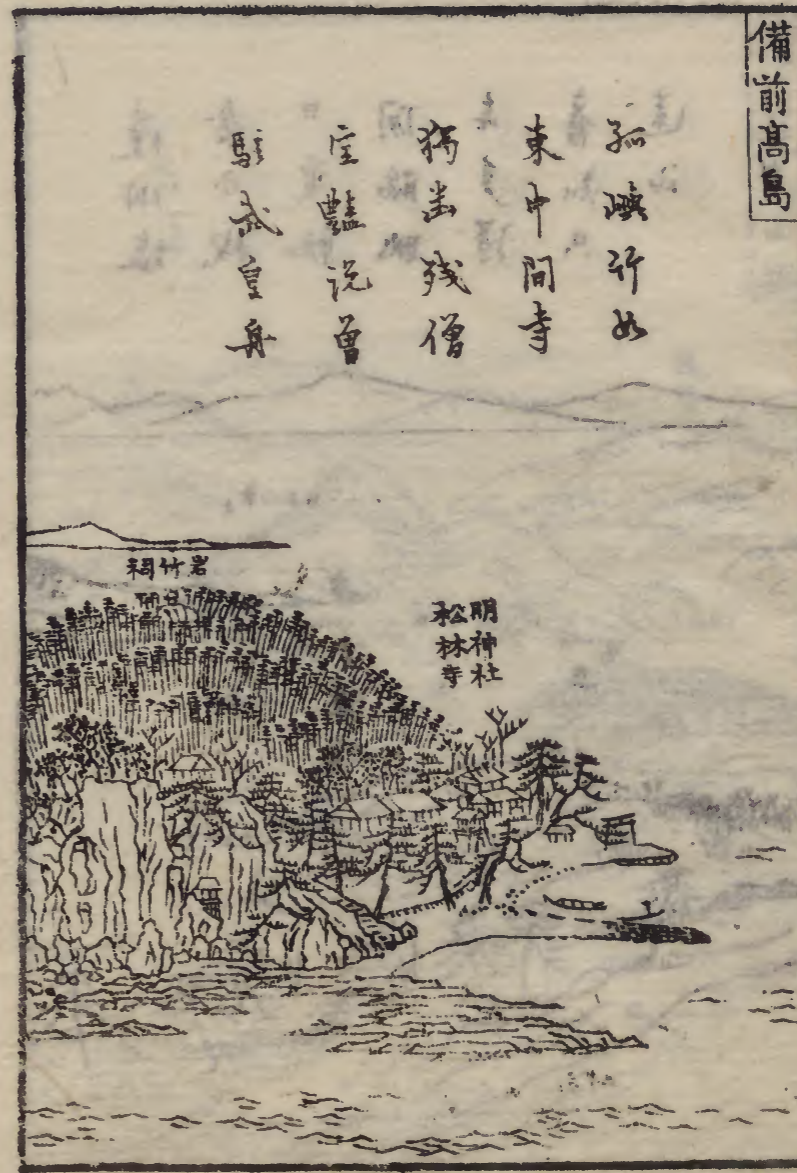 備前髙島
孤嶼竹如
束中間寺
獨幽残僧
空豔説曽
駐武皇舟
岩竹祠
明神社
松林寺